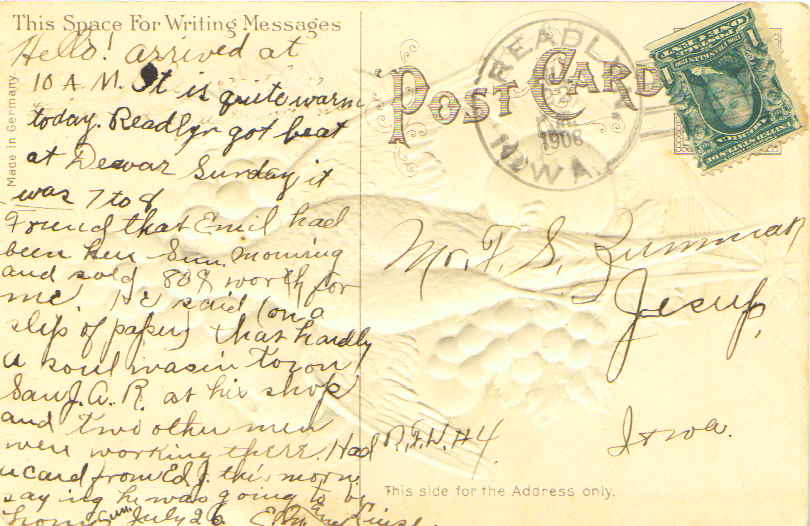 This Space For Writing Messages
Made in Germany
Hello! arrived at
10 A.M. It is quite warm
today. Readlyn got beat
at Dewar Sunday it
was 7 to 8
Found that Emil had
been here Sun. morning
and sold 80¢ worth for
me, He said (on a
slip of paper) that hardly
a soul was in town
Saw J. A. R. at his shop
and two other men
were working there. Had
a card from Ed J. this morn.
saying he was going to be
home Sun. July 26
POST CARD
READLYN
1908
IOWA
Mr. F. S.
Jesup,
Iowa.
R.F.D. #4.
This side for the Address only.